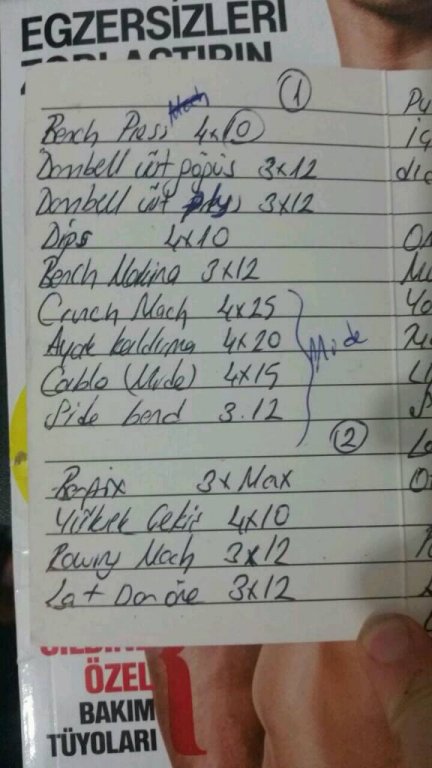 EGZERSİZLERİ
ZORLAŞTIRIN
1
Mach
Bench Press 4x10
Dombell üst göğüs 3x12
Dombell üst 3x12
Dips 4x10
Bench Makina 3x12
Crunch Mach 4x25
Ayak kaldırma 4x20
Cablo (Mide) 4x15
Side bend 3.12
Mide
2
Barfix 3xMax
Yüksek Çekiş 4x10
Rowing Mach 3x12
Lat Dar öne 3x12
ÖZEL
BAKIM
TÜYOLARI